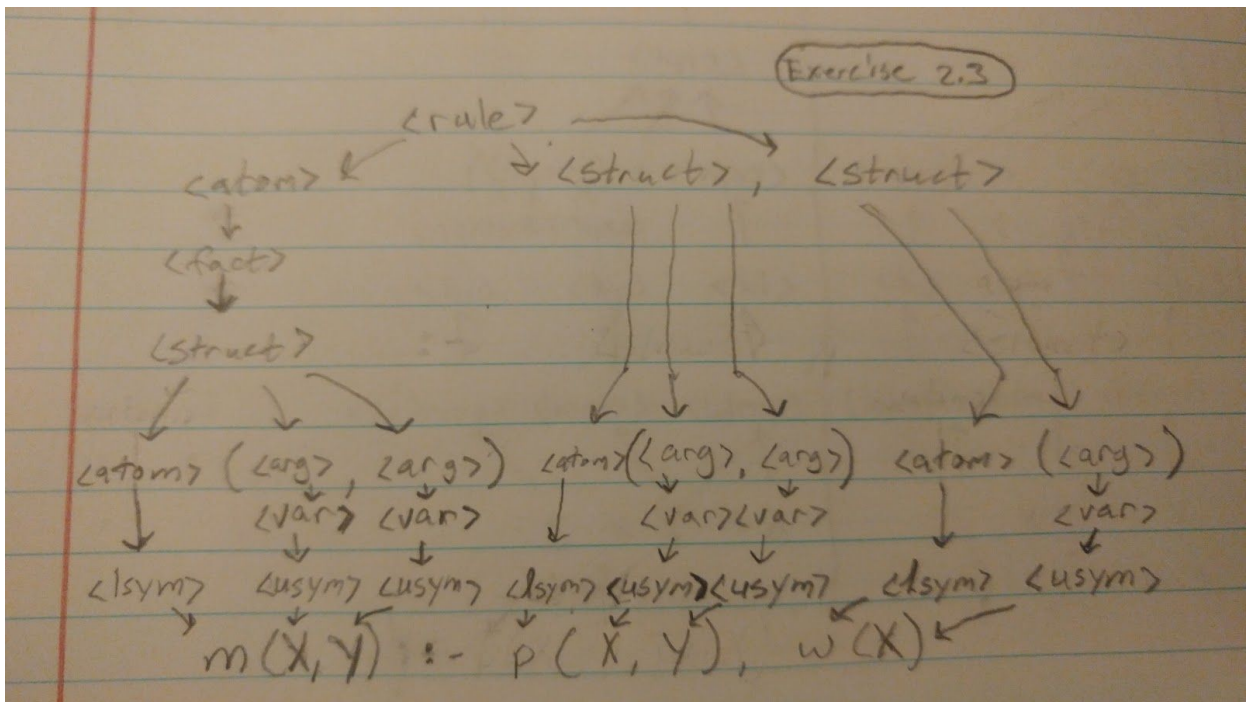 Exercise 2.3
<rule>
<atom> <struct>, <struct>
<fact>
<struct>
<atom> (<arg>, <arg>) <atom>(<arg>, <arg>) <atom> (<arg>)
<var> <var> <var> <var> <var>
<lsym> <usym> <usym> <lsym> <usym> <usym> <lsym> <usym>
m(X,Y) :- p(X, Y), w(X)